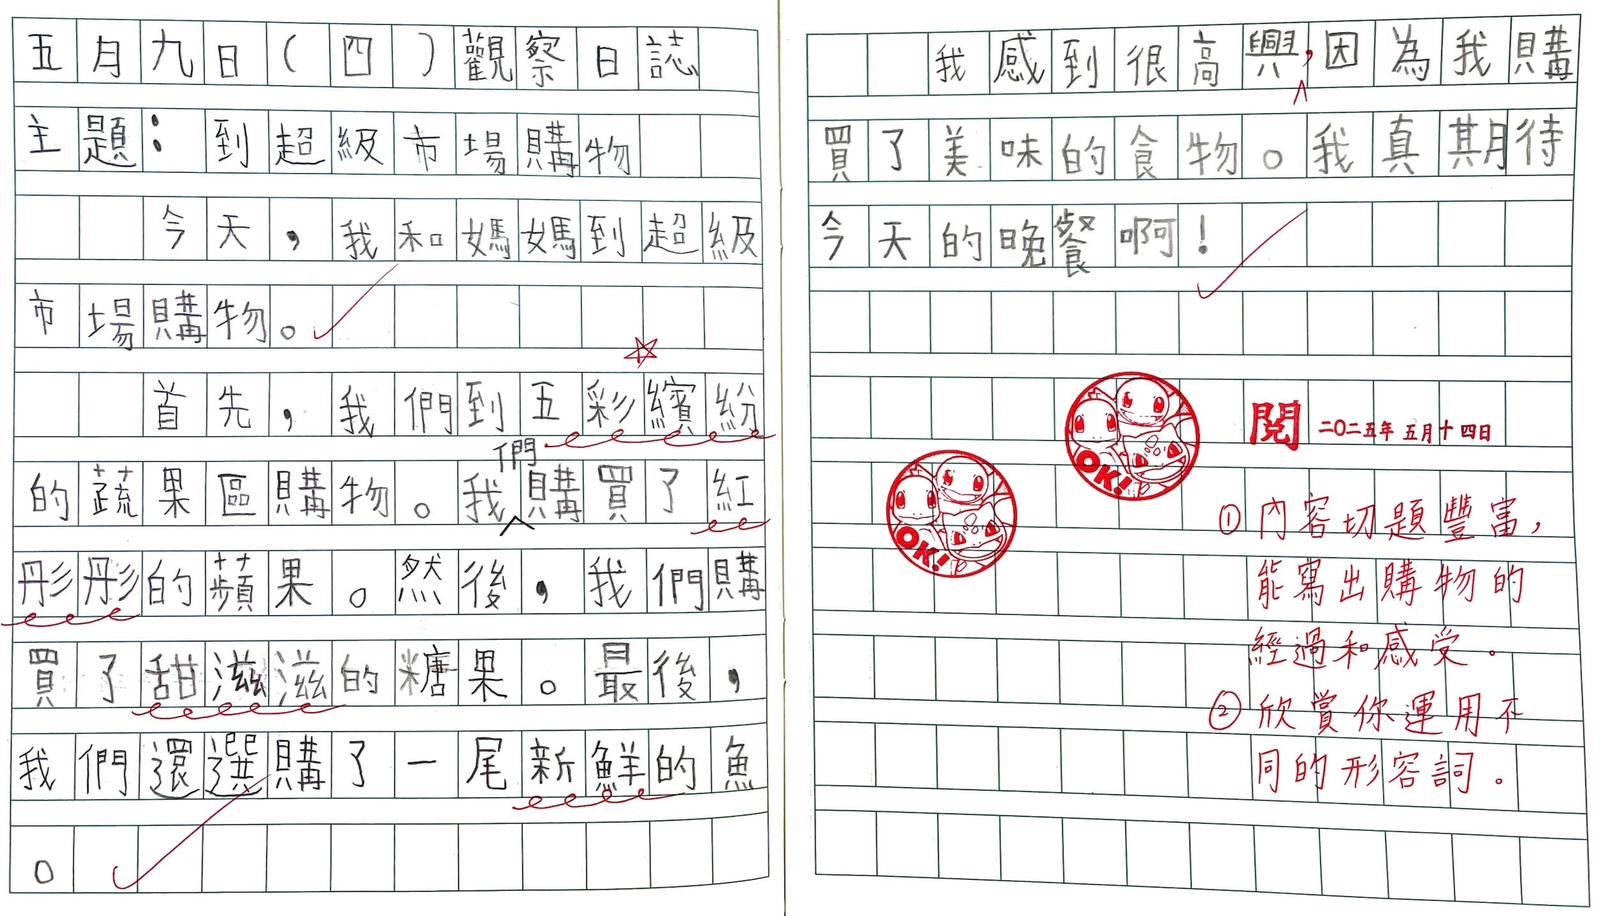 五月九日(四)觀察日誌
主題：到超級市場購物
今天，我和媽媽到超級
市場購物。
首先，我們到五彩繽紛
的蔬果區購物。我們購買了紅
彤彤的蘋果。然後，我們購
買了甜滋滋的糖果。最後，
我們還選購了一尾新鮮的魚
。
我感到很高興，因為我購
買了美味的食物。我真期待
今天的晚餐啊！
OK!
OK!
閱 二〇二五年五月十四日
①內容切題豐富，
能寫出購物的
經過和感受。
②欣賞你運用不
同的形容詞。